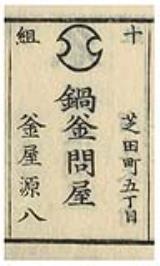 十組
芝田町五丁目
鍋釜問屋
釜屋源八